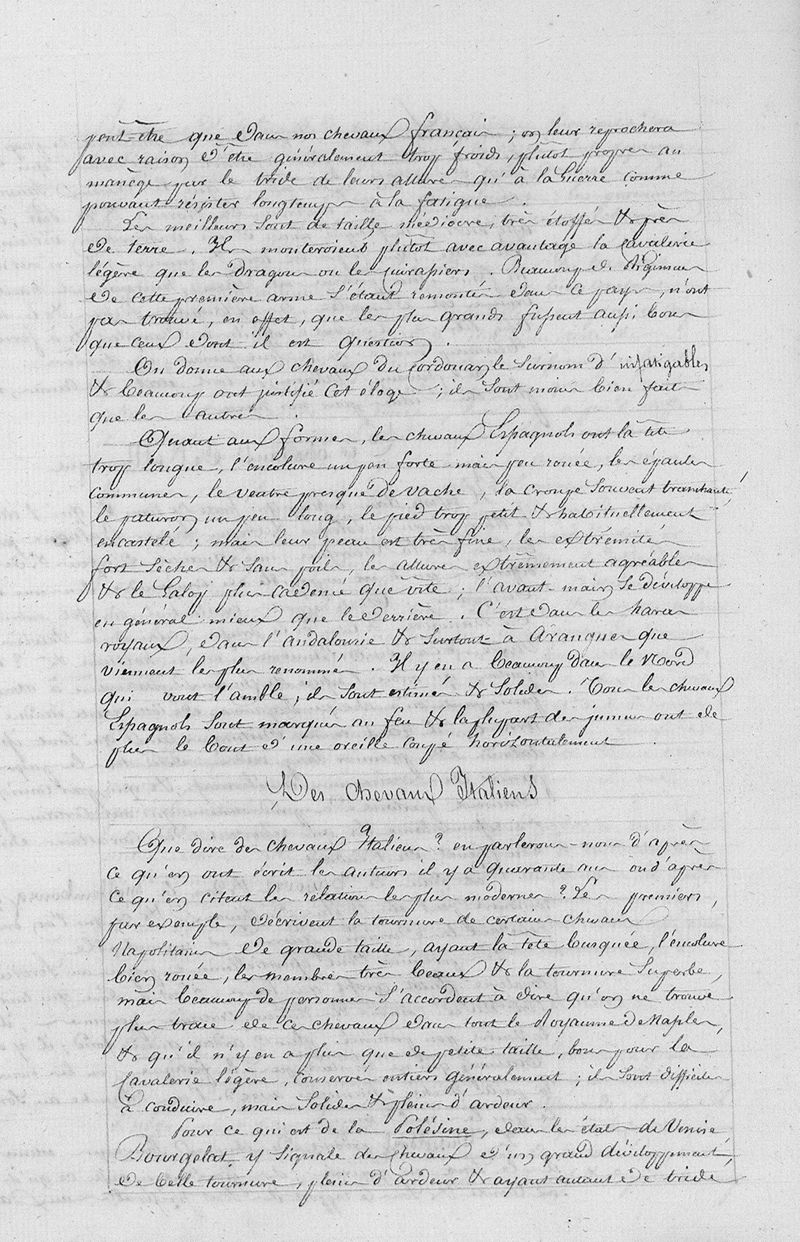 peut-être que dans nos chevaux français ; on leur reprochera
avec raison d'être généralement trop froids, plutôt propres au
manège par le bride de leurs allures qu'à la Guerre comme
pouvant résister longtemps à la fatigue.
Les meilleurs sont de taille médiocre, très étoffés & près
de terre. Ils monteroient plutôt avec avantage la Cavalerie
légère que les Dragons ou les Cuirassiers. Beaucoup de Régimens
de cette première arme s'étant remontés dans ce pays, n'ont
pas trouvé, en effet, que les plus grands fussent aussi bons
que ceux dont il est question.
On donne aux chevaux du Cordouan le surnom d'infatigables
& beaucoup ont justifié cet éloge ; ils sont moins bien faits
que les autres.
Quant aux formes, les chevaux Espagnols ont la tête
trop longue, l'encolure un peu forte mais peu rouée, les épaules
communes, le ventre presque de vache, la croupe souvent tranchante,
le paturon un peu long, le pied trop petit & habituellement
encastelé ; mais leur peau est très fine, les extrémités
fort sèches & sans poils, les allures extrêmement agréables
& le Galop plus cadencé que vîte ; l'avant-main se développe
en général mieux que le derrière. C'est dans les haras
royaux, dans l'andalousie & surtout à aranques que
viennent les plus renommés. Il y en a beaucoup dans le Nord
qui vont l'amble ; ils sont estimés & solides. Tous les chevaux
Espagnols sont marqués au feu & la plupart des jumens ont de
plus le bout d'une oreille coupé horizontalement.
Des chevaux Italiens
Que dire des chevaux Italiens ? en parlerons-nous d'après
ce qu'en ont écrit les auteurs il y a quarante ans ou d'après
ce qu'en citent les relations les plus modernes ? Les premiers,
par exemple, décrivent la tournure de certains chevaux
Napolitains de grande taille, ayant la tête busquée, l'encolure
bien rouée, les membres très beaux & la tournure superbe,
mais beaucoup de personnes s'accordent à dire qu'on ne trouve
plus trace de ces chevaux dans tout le Royaume de Naples,
& qu'il n'y en a plus que de petite taille, bons pour la
Cavalerie légère, conservés entiers généralement ; ils sont difficiles
à conduire, mais solides & pleins d'ardeur.
Pour ce qui est de la Polésine, dans les états de Venise
Bourgelat y signale des chevaux d'un grand développement,
de belle tournure, pleins d'ardeur & ayant autant de bride